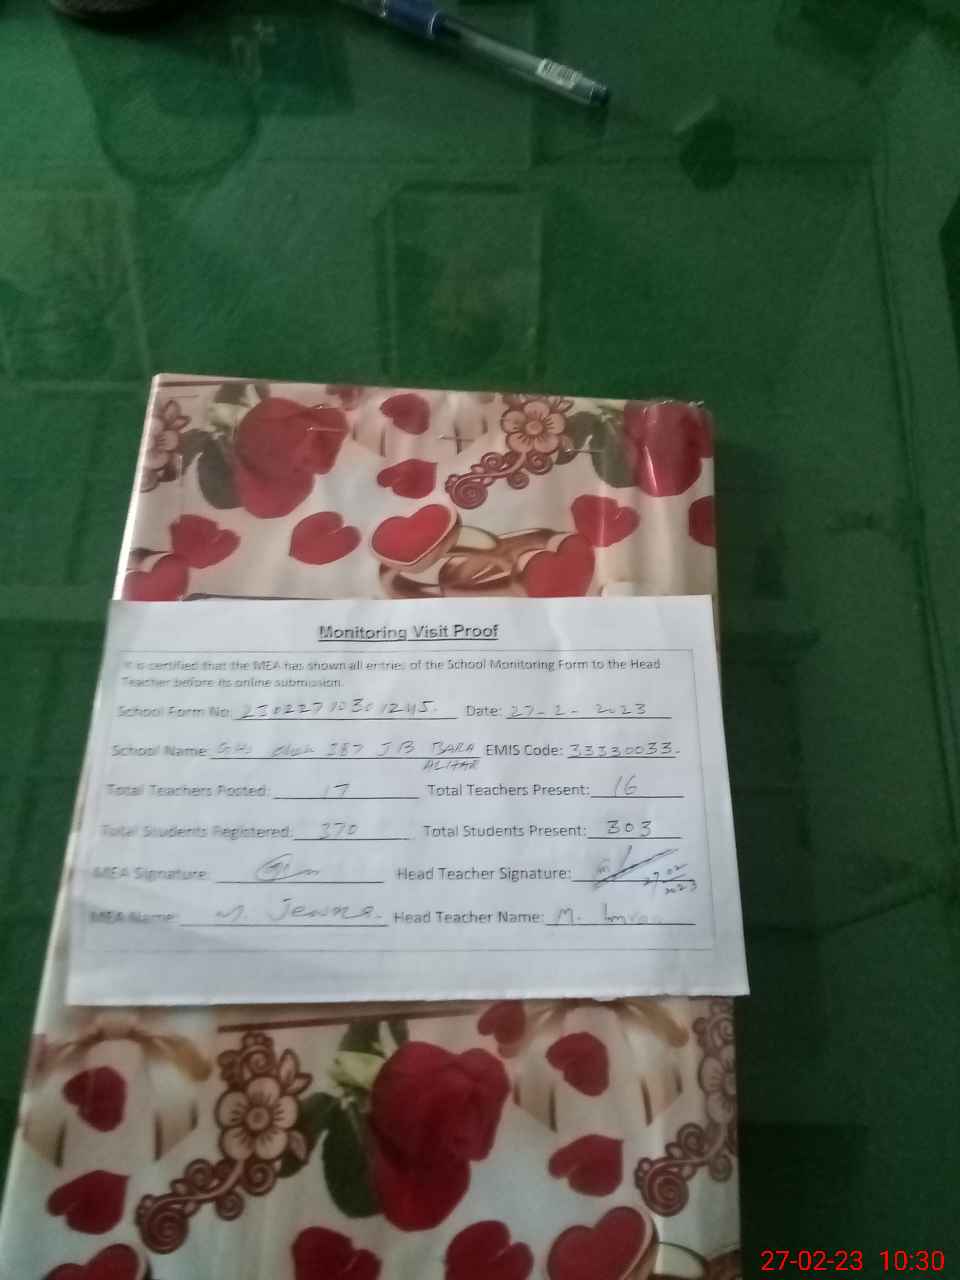 Monitoring Visit Proof
It is certified that the MEA has shown all entries of the School Monitoring Form to the Head
Teacher before its online submission.
School Form No: 23022710301245. Date: 27-2-2023
School Name: 387 JB BARA EMIS Code: 33330033.
Total Teachers Posted: 17 Total Teachers Present: 16
Total Students Registered: 370 Total Students Present: 303
MEA Signature: Head Teacher Signature: 27.02
2023
MEA Name: M. Head Teacher Name: M. Imran
27-02-23 10:30